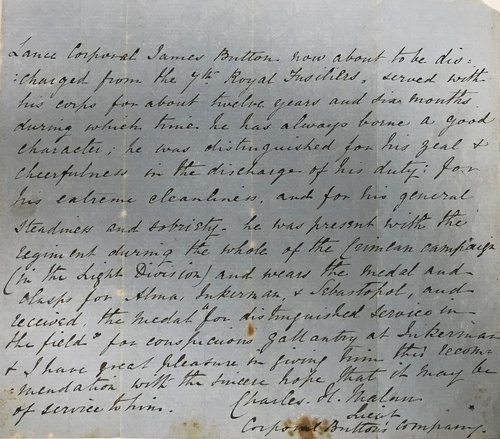 Lance Corporal James Button now about to be dis=
=charged from the 7th Royal Fusiliers, served with
his corps for about twelve years and six months
during which time he has always borne a good
character; he was distinguished for his zeal &
cheerfulness in the discharge of his duty: for
his extreme cleanliness, and for his general
steadiness and sobriety. he was present with the
regiment during the whole of the Crimean campaign
(in the Light Division) and wears the medal and
clasps for Alma, Inkerman, & Sebastopol, and
received, the medal "for distinguished service in
the field" for conspicuous gallantry at Inkerman
& I have great pleasure in giving him this recom=
=mendation with the sincere hope that it may be
of service to him.
Charles H. Malan
Lieut
Corporal Button's Company.